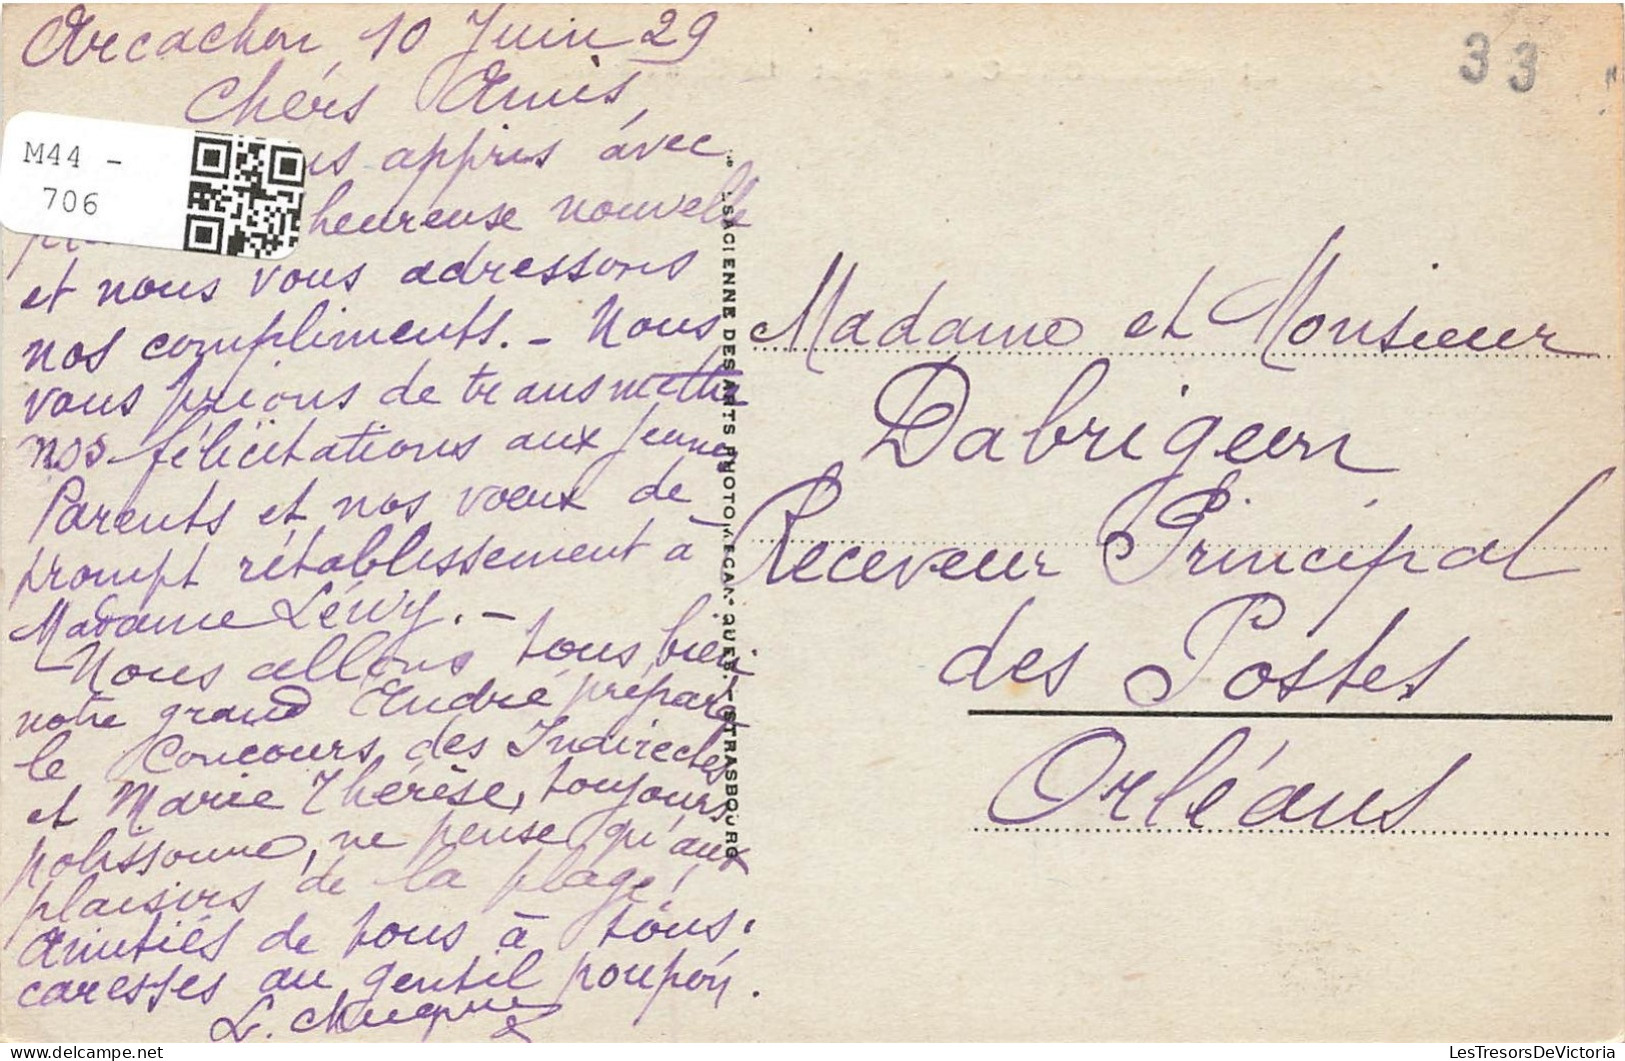 Arcachon 10 Juin 29
Chers Amis,
us appris avec
heureuse nouvelle
et nous vous adressons
nos compliments. - Nous
vous prions de transmettre
nos félicitations aux jeunes
Parents et nos vœux de
prompt rétablissement à
Madame Lévy. -
Nous allons tous bien
notre grand André prépare
le Concours des Indirectes
et Marie Thérèse, toujours
polissonne, ne pense qu'aux
plaisirs de la plage!
Amitiés de tous à tous.
caresses au gentil poupón.
M44 -
706
SACIENNE DES ARTS PHOTOMÉCANIQUES. - STRASBOURG
33
Madame et Monsieur
Dabrigeon
Receveur Principal
des Postes
Orléans
LesTresorsDeVictoria